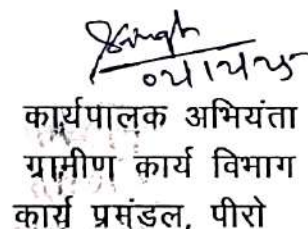 Singh
कार्यपालक अभियंता
ग्रामीण कार्य विभाग
कार्य प्रमंडल, पीरो